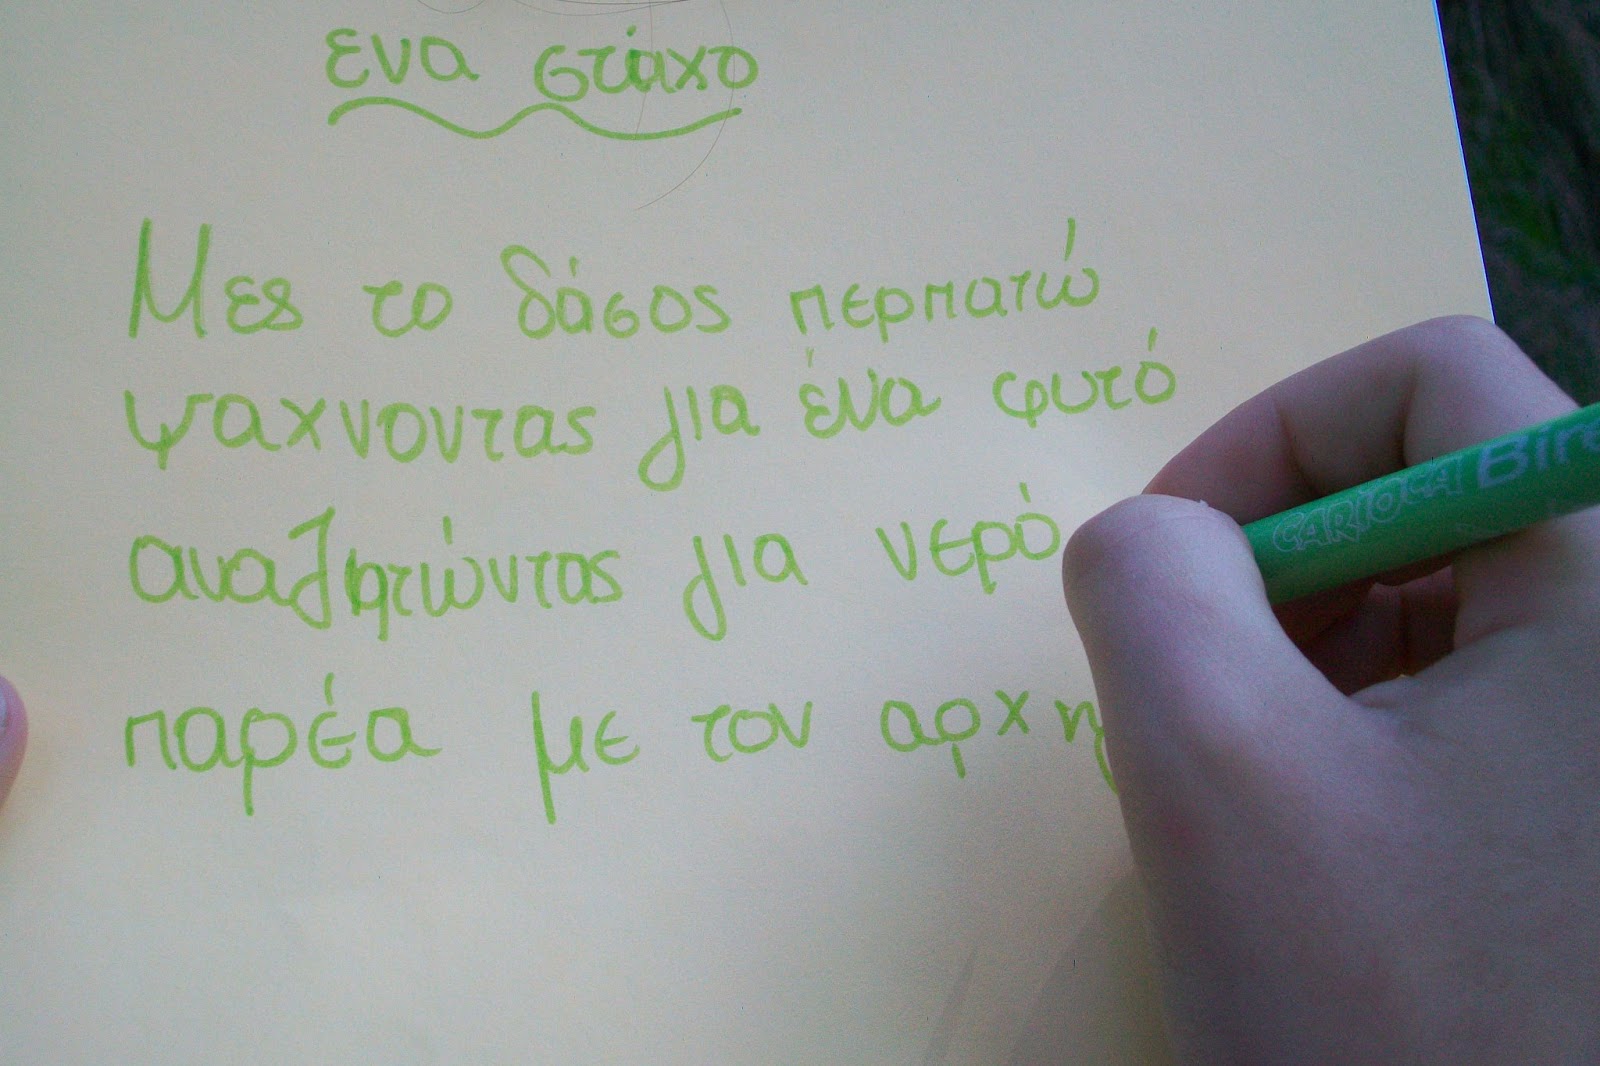 ενα στάχο
Μες το δάσος περπατώ
ψαχνοντας για ένα φυτό
αναζητώντας για νερό
παρέα με τον
CARIOCA